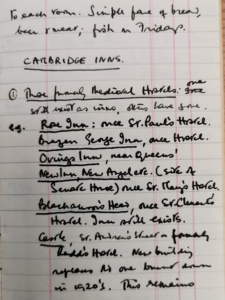 to each room. Simple fare of bread,
beer & meat; fish on Fridays.
CAMBRIDGE INNS.
① Those formerly Medieval Hostels: one
still exist as inns, others have gone.
eg. Roe Inn: once St. Paul's Hostel.
Brazen George Inn, once Hostel.
Ovings Inn, near Queens'
New Inn Now Angel etc. (site of
Senate House) once St. Mary's Hostel.
Blackamoor's Head, once St. Clement's
Hostel. Inn still exists.
Castle, St. Andrew's Street formerly
Rudd's Hostel. New building
replaces old one burnt down
in 1920's. This remains